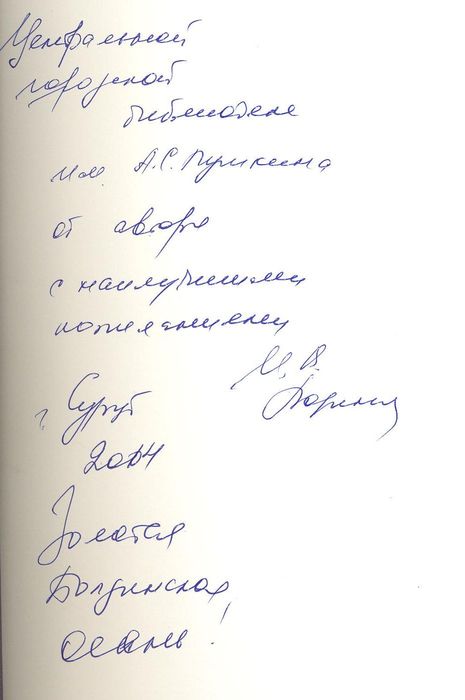 Центральной
городской
библиотеке
им. А.С. Пушкина
от автора
с наилучшими
пожеланиями
И. В.
Ларина
г. Сургут
2004
Золотая
Болдинская
осень!